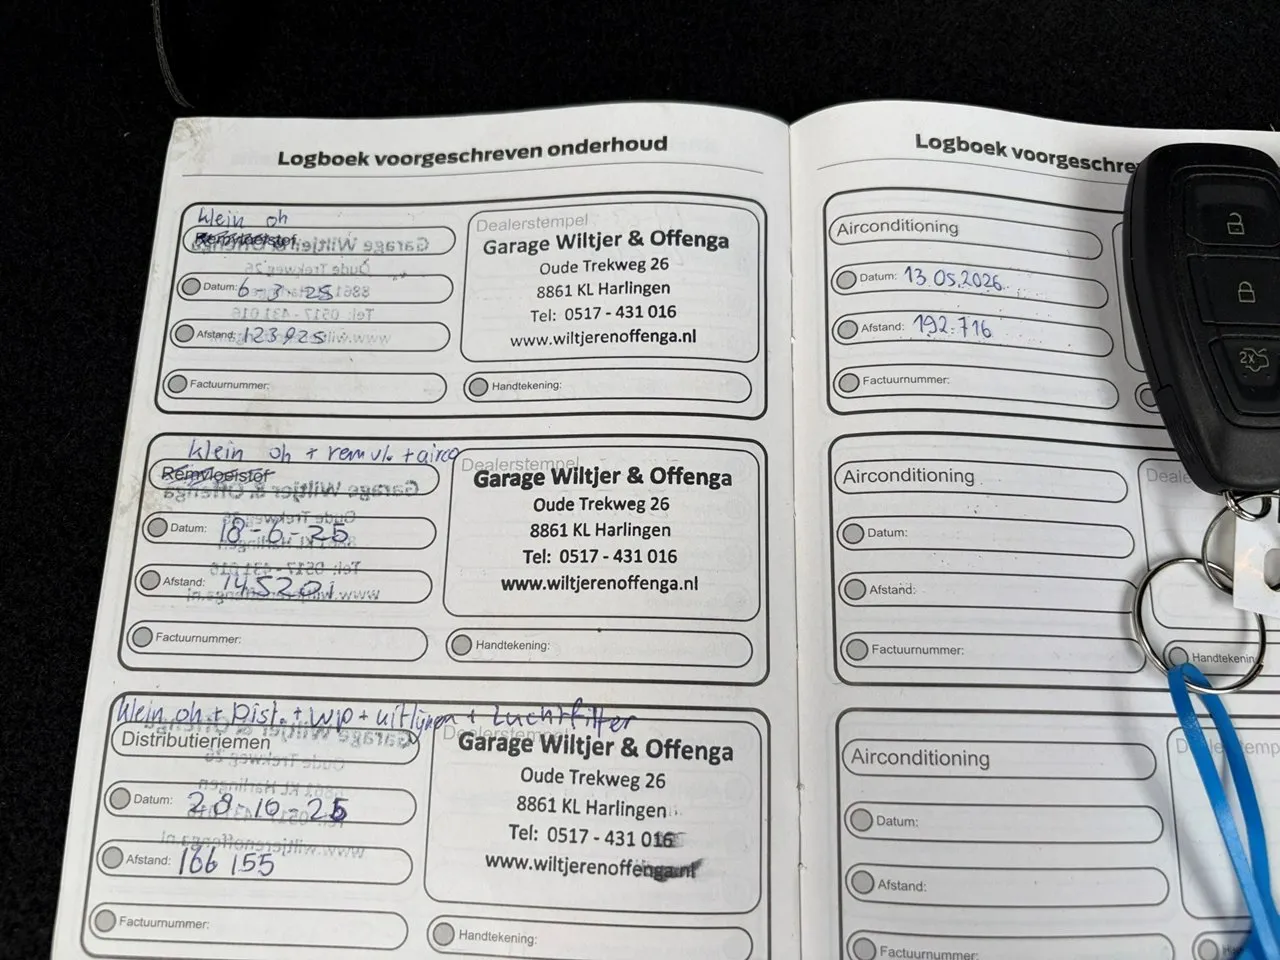 Logboek voorgeschreven onderhoud
klein oh
Remvloeistof
Dealerstempel
Garage Wiltjer & Offenga
Oude Trekweg 26
8861 KL Harlingen
Tel: 0517 - 431 016
www.wiltjerenoffenga.nl
Datum: 6-3-25
Afstand: 123925
Factuurnummer:
Handtekening:
klein oh + remvl. + airco
Remvloeistof
Dealerstempel
Garage Wiltjer & Offenga
Oude Trekweg 26
8861 KL Harlingen
Tel: 0517 - 431 016
www.wiltjerenoffenga.nl
Datum: 18-6-25
Afstand: 145201
Factuurnummer:
Handtekening:
klein oh + Dist. + wp + uitlijnen + Luchtfilter
Distributieriemen
Dealerstempel
Garage Wiltjer & Offenga
Oude Trekweg 26
8861 KL Harlingen
Tel: 0517 - 431 016
www.wiltjerenoffenga.nl
Datum: 28-10-25
Afstand: 166155
Factuurnummer:
Handtekening:
Logboek voorgeschre
Airconditioning
Datum: 13.05.2026
Afstand: 192.716
Factuurnummer:
Airconditioning
Datum:
Afstand:
Factuurnummer:
Handtekenin
Airconditioning
Datum:
Afstand:
Factuurnummer:
2x